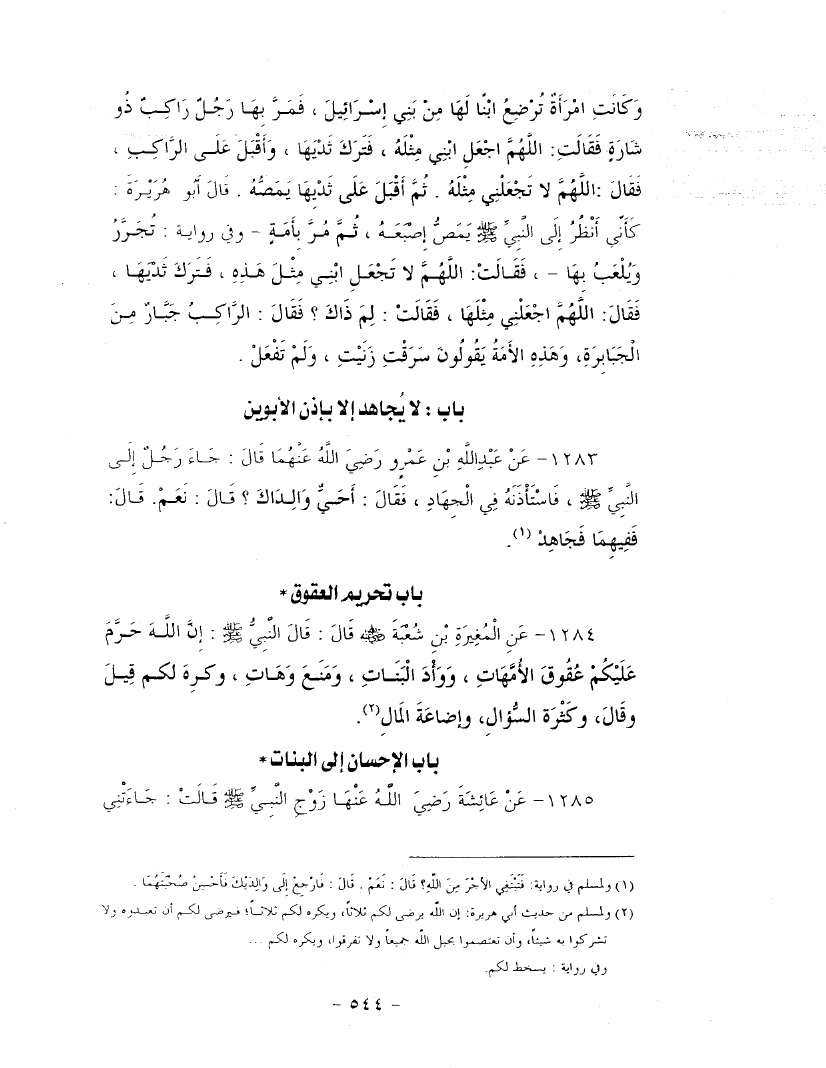 وَكَانَتِ امْرَأَةٌ تُرْضِعُ ابْنًا لَهَا مِنْ بَنِي إِسْرَائِيلَ ، فَمَرَّ بِهَا رَجُلٌ رَاكِبٌ ذُو
شَارَةٍ فَقَالَتِ: اللَّهُمَّ اجْعَلِ ابْنِي مِثْلَهُ ، فَتَرَكَ ثَدْيَهَا ، وَأَقْبَلَ عَلَى الرَّاكِبِ ،
فَقَالَ :اللَّهُمَّ لا تَجْعَلْنِي مِثْلَهُ . ثُمَّ أَقْبَلَ عَلَى ثَدْيِهَا يَمَصُّهُ . قَالَ أَبُو هُرَيْرَةَ :
كَأَنِّي أَنْظُرُ إِلَى النَّبِيِّ ﷺ يَمَصُّ إِصْبَعَهُ ، ثُمَّ مُرَّ بِأَمَةٍ - وفي رواية : تُجَرَّرُ
وَيُلْعَبُ بِهَا - ، فَقَالَتْ: اللَّهُمَّ لا تَجْعَلِ ابْنِي مِثْلَ هَذِهِ ، فَتَرَكَ ثَدْيَهَا ،
فَقَالَ: اللَّهُمَّ اجْعَلْنِي مِثْلَهَا ، فَقَالَتْ : لِمَ ذَاكَ ؟ فَقَالَ : الرَّاكِبُ جَبَّارٌ مِنَ
الْجَبَابِرَةِ، وَهَذِهِ الأَمَةُ يَقُولُونَ سَرَقْتِ زَنَيْتِ ، وَلَمْ تَفْعَلْ .
باب : لا يُجاهد إلا بإذن الأبوين
١٢٨٣- عَنْ عَبْدِاللَّهِ بْنِ عَمْرٍو رَضِيَ اللَّهُ عَنْهُمَا قَالَ : جَاءَ رَجُلٌ إِلَى
النَّبِيِّ ﷺ ، فَاسْتَأْذَنَهُ فِي الْجِهَادِ ، فَقَالَ : أَحَيٌّ وَالِدَاكَ ؟ قَالَ : نَعَمْ. قَالَ:
فَفِيهِمَا فَجَاهِدْ (١).
باب تحريم العقوق *
١٢٨٤- عَنِ الْمُغِيرَةِ بْنِ شُعْبَةَ ﵁ قَالَ : قَالَ النَّبِيُّ ﷺ : إِنَّ اللَّهَ حَرَّمَ
عَلَيْكُمْ عُقُوقَ الأُمَّهَاتِ ، وَوَأْدَ الْبَنَاتِ ، وَمَنَعَ وَهَاتِ ، وَكَرِهَ لَكُمْ قِيلَ
وَقَالَ، وَكَثْرَةَ السُّؤَالِ، وَإِضَاعَةَ الْمَالِ(٢).
باب الإحسان إلى البنات *
١٢٨٥- عَنْ عَائِشَةَ رَضِيَ اللَّهُ عَنْهَا زَوْجِ النَّبِيِّ ﷺ قَالَتْ : جَاءَتْنِي
(١) ولمسلم في رواية: فَتَبْتَغِي الأَجْرَ مِنَ اللَّهِ؟ قَالَ : نَعَمْ . قَالَ : فَارْجِعْ إِلَى وَالِدَيْكَ فَأَحْسِنْ صُحْبَتَهُمَا .
(٢) ولمسلم من حديث أبي هريرة: إن الله يرضى لكم ثلاثاً، ويكره لكم ثلاثاً؛ فيرضى لكم أن تعبدوه ولا
تشركوا به شيئاً، وأن تعتصموا بحبل الله جميعاً ولا تفرقوا، ويكره لكم ...
وفي رواية : يسخط لكم.
- ٥٤٤ -